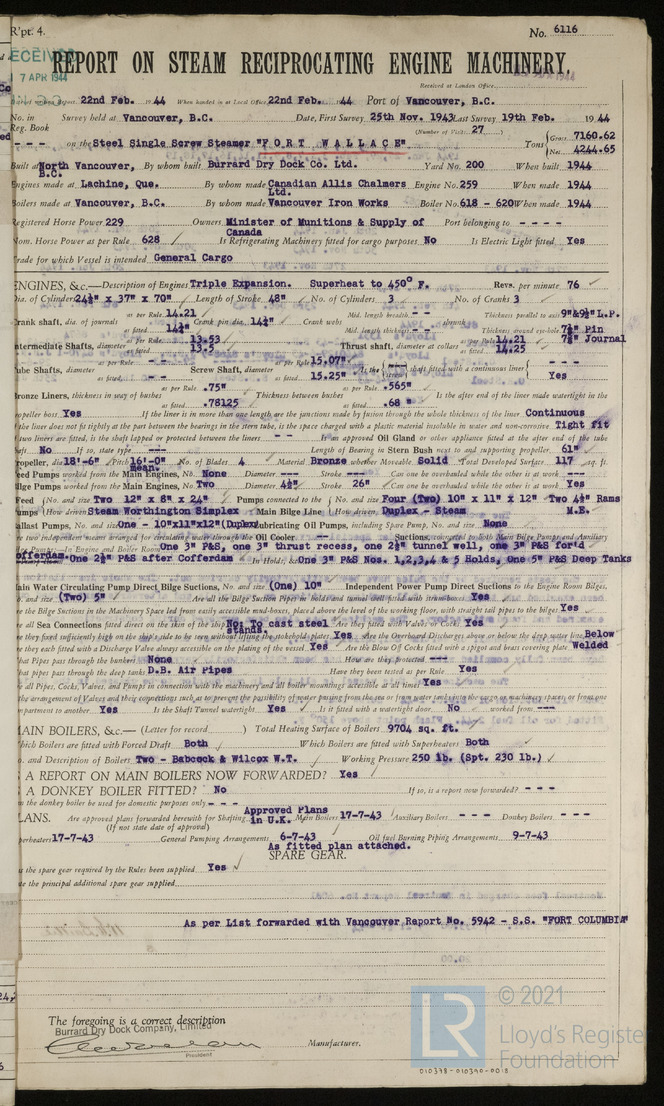 R'pt. 4.
No. 6116
REPORT ON STEAM RECIPROCATING ENGINE MACHINERY.
7 APR 1944
Received at London Office
22nd Feb. 19 44 When handed in at Local Office 22nd Feb. 44 Port of Vancouver, B.C.
No. in Reg. Book Survey held at Vancouver, B.C. Date, First Survey 25th Nov. 1943 Last Survey 19th Feb. 19 44
(Number of Visits 27
- - - on the Steel Single Screw Steamer "FORT WALLACE" Tons Gross 7160.62 Net 4244.65
Built at North Vancouver, B.C. By whom built Burrard Dry Dock Co. Ltd. Yard No. 200 When built 1944
Engines made at Lachine, Que. By whom made Canadian Allis Chalmers Ltd. Engine No. 259 When made 1944
Boilers made at Vancouver, B.C. By whom made Vancouver Iron Works Boiler No. 618 - 620 When made 1944
Registered Horse Power 229 Owners Minister of Munitions & Supply of Canada Port belonging to - - - -
Nom. Horse Power as per Rule 628 Is Refrigerating Machinery fitted for cargo purposes No Is Electric Light fitted Yes
Trade for which Vessel is intended General Cargo
ENGINES, &c.—Description of Engines Triple Expansion. Superheat to 450° F. Revs. per minute 76
Dia. of Cylinders 24½" x 37" x 70" Length of Stroke 48" No. of Cylinders 3 No. of Cranks 3
Crank shaft, dia. of journals as per Rule 14.21 as fitted 14½" Crank pin dia. 14½" Crank webs Mid. length breadth - - Mid. length thickness - - shrunk Thickness parallel to axis 9"&9½"L.P. Thickness around eye-hole 7½" Pin 7½" Journal
Intermediate Shafts, diameter as per Rule 13.53 as fitted 13.5 Thrust shaft, diameter at collars as per Rule 14.21 as fitted 14.25
Tube Shafts, diameter as per Rule - - as fitted - - Screw Shaft, diameter as per Rule 15.07" as fitted 15.25" Is the shaft fitted with a continuous liner Yes
Bronze Liners, thickness in way of bushes as per Rule .75" as fitted .78125 Thickness between bushes as per Rule .565" as fitted .68" Is the after end of the liner made watertight in the
propeller boss Yes If the liner is in more than one length are the junctions made by fusion through the whole thickness of the liner Continuous
If the liner does not fit tightly at the part between the bearings in the stern tube, is the space charged with a plastic material insoluble in water and non-corrosive Tight fit
If two liners are fitted, is the shaft lapped or protected between the liners - - Is an approved Oil Gland or other appliance fitted at the after end of the tube
shaft No If so, state type --- Length of Bearing in Stern Bush next to and supporting propeller. 61"
Propeller, dia 18'-6" Pitch 16'-0" mean. No. of Blades 4 Material Bronze whether Moveable Solid Total Developed Surface 117 sq. ft.
Feed Pumps worked from the Main Engines, No. None Diameter --- Stroke --- Can one be overhauled while the other is at work ---
Bilge Pumps worked from the Main Engines, No. Two Diameter 4½" Stroke 26" Can one be overhauled while the other is at work Yes
Feed Pumps No. and size Two 12" x 8" x 24" How driven Steam Worthington Simplex Pumps connected to the Main Bilge Line No. and size Four (Two) 10" x 11" x 12" Two 4½" Rams How driven Duplex - Steam M.E.
Ballast Pumps, No. and size One - 10"x11"x12"(Duplex) Lubricating Oil Pumps, including Spare Pump, No. and size None
Are two independent means arranged for circulating water through the Oil Cooler --- Suctions, connected to both Main Bilge Pumps and Auxiliary
Bilge Pumps—In Engine and Boiler Room One 3" P&S, one 3" thrust recess, one 2½" tunnel well, one 3" P&S for'd
Cofferdam One 2½" P&S after Cofferdam In Holds, &c One 3" P&S Nos. 1,2,3,4 & 5 Holds, One 5" P&S Deep Tanks
Main Water Circulating Pump Direct Bilge Suctions, No. and size (One) 10" Independent Power Pump Direct Suctions to the Engine Room Bilges,
No. and size (Two) 5" Are all the Bilge Suction Pipes in holds and tunnel well fitted with strum-boxes Yes
Are the Bilge Suctions in the Machinery Space led from easily accessible mud-boxes, placed above the level of the working floor, with straight tail pipes to the bilges Yes
Are all Sea Connections fitted direct on the skin of the ship No: To cast steel stands. Are they fitted with Valves or Cocks Yes
Are they fixed sufficiently high on the ship's side to be seen without lifting the stokehold plates Yes Are the Overboard Discharges above or below the deep water line Below
Are they each fitted with a Discharge Valve always accessible on the plating of the vessel Yes Are the Blow Off Cocks fitted with a spigot and brass covering plate Welded
What Pipes pass through the bunkers None How are they protected ---
What pipes pass through the deep tanks D.B. Air Pipes Have they been tested as per Rule Yes
Are all Pipes, Cocks, Valves, and Pumps in connection with the machinery and all boiler mountings accessible at all times Yes
Is the arrangement of Valves and their connections such as to prevent the possibility of water passing from the sea or from water tanks into the cargo or machinery spaces, or from one
compartment to another Yes Is the Shaft Tunnel watertight Yes Is it fitted with a watertight door No worked from ---
MAIN BOILERS, &c.— (Letter for record ) Total Heating Surface of Boilers 9704 sq. ft.
Which Boilers are fitted with Forced Draft Both Which Boilers are fitted with Superheaters Both
No. and Description of Boilers Two - Babcock & Wilcox W.T. Working Pressure 250 lb. (Spt. 230 lb.)
IS A REPORT ON MAIN BOILERS NOW FORWARDED? Yes
IS A DONKEY BOILER FITTED? No If so, is a report now forwarded? - - -
Is the donkey boiler used for domestic purposes only - - -
PLANS. Are approved plans forwarded herewith for Shafting Approved Plans in U.K. Main Boilers 17-7-43 Auxiliary Boilers - - - Donkey Boilers - - -
(If not state date of approval)
Superheaters 17-7-43 General Pumping Arrangements 6-7-43 Oil fuel Burning Piping Arrangements 9-7-43
As fitted plan attached.
SPARE GEAR.
Has the spare gear required by the Rules been supplied Yes
State the principal additional spare gear supplied
As per List forwarded with Vancouver Report No. 5942 - S.S. "FORT COLUMBIA"
The foregoing is a correct description
Burrard Dry Dock Company, Limited
President
Manufacturer.
LR
© 2021
Lloyd's Register
Foundation
010398-010390-0018